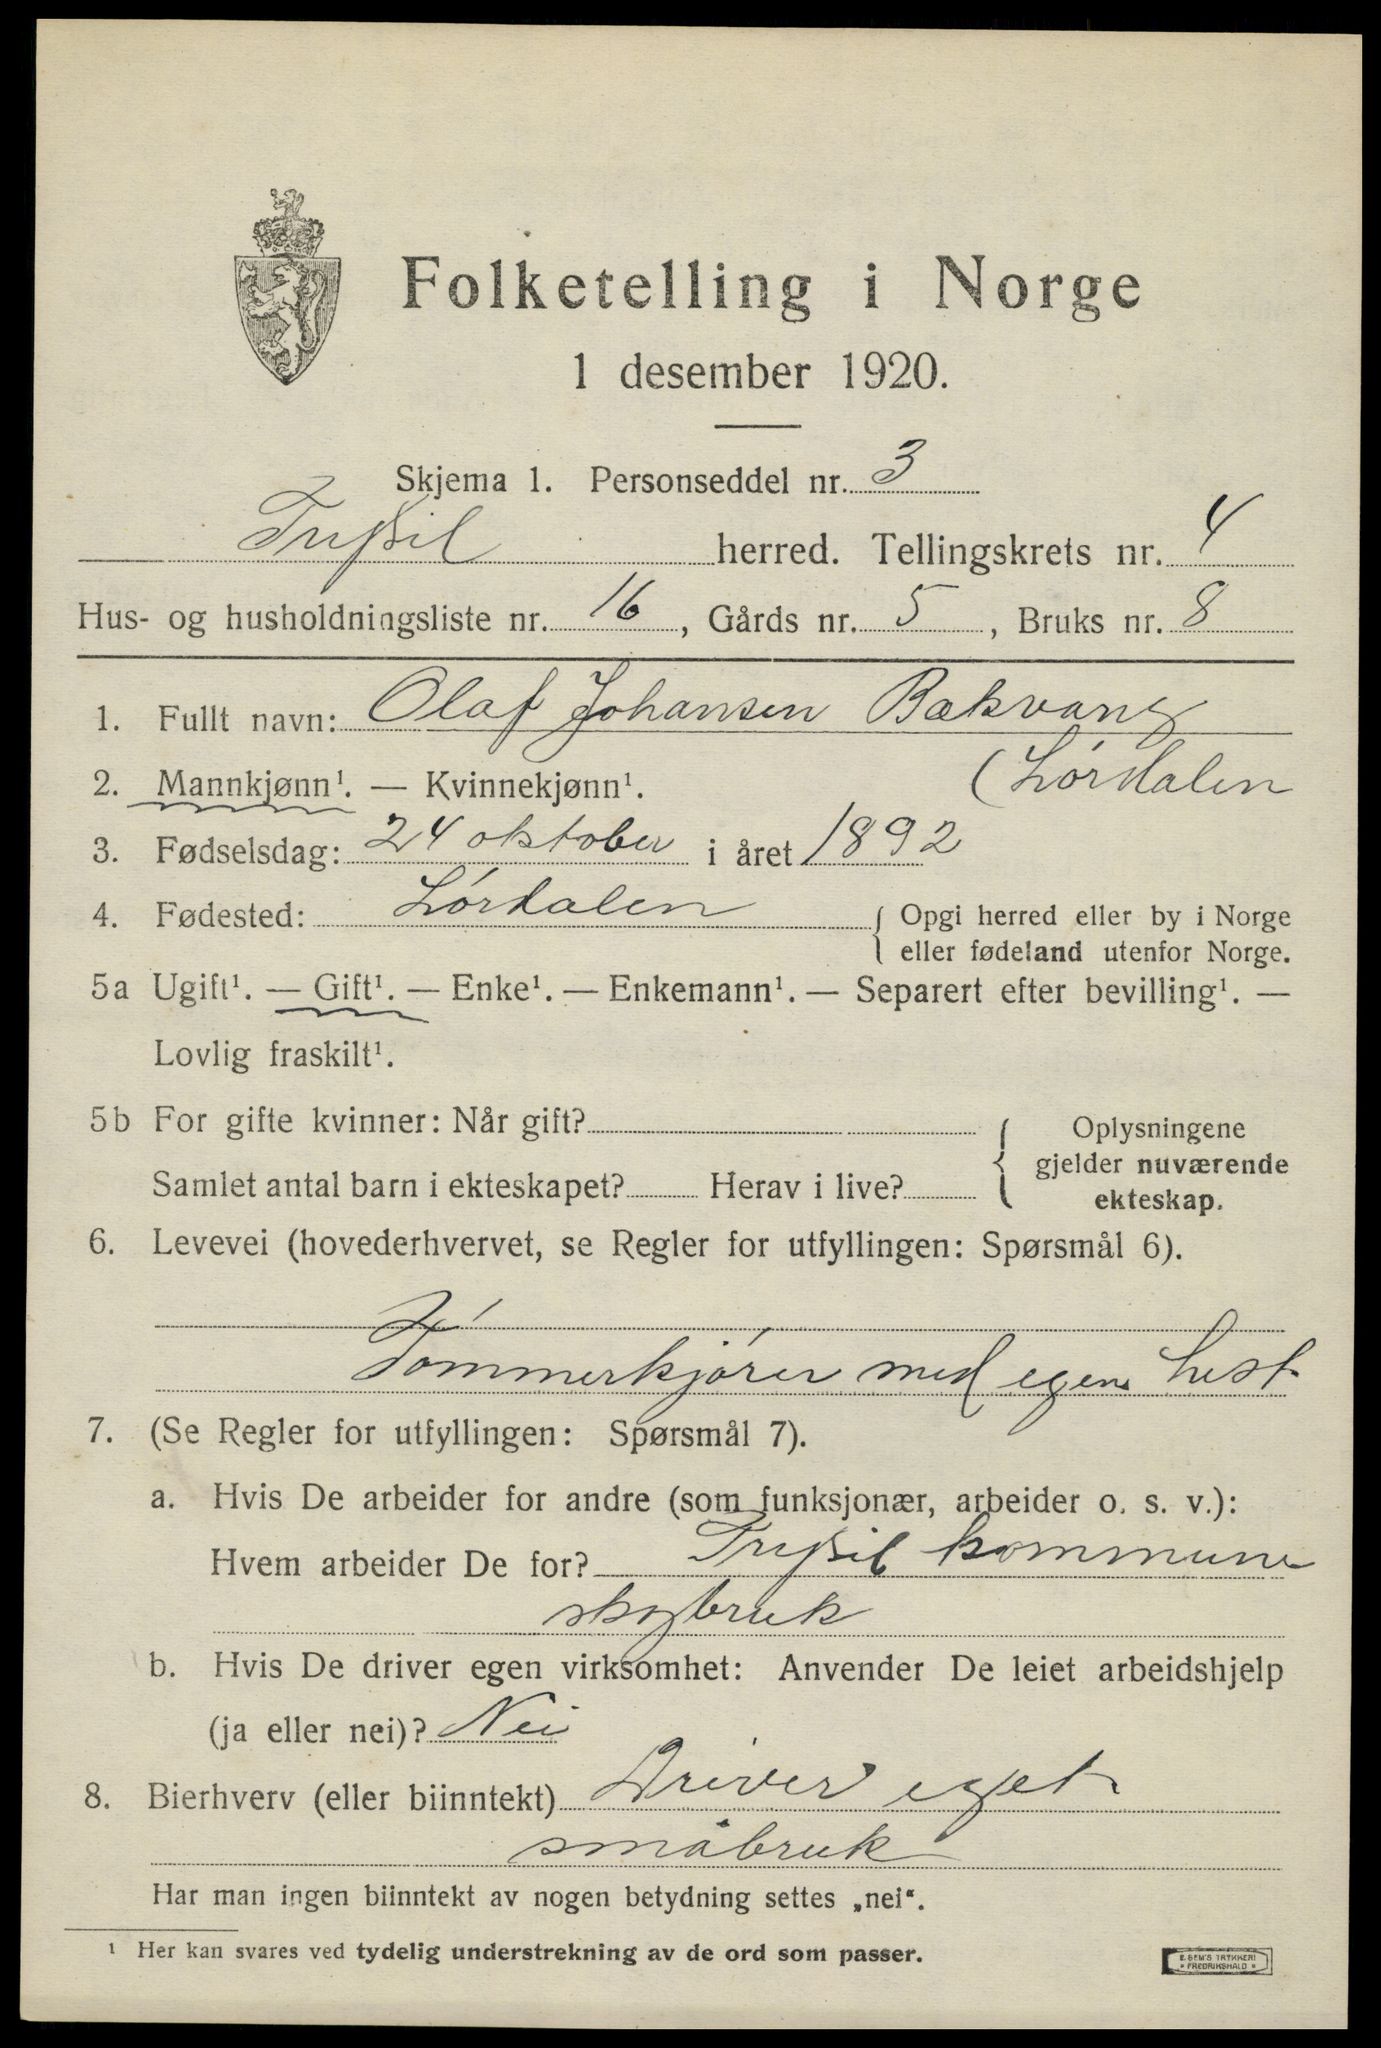 Folketelling i Norge
1 desember 1920.
Skjema 1. Personseddel nr. 3
Tryssil herred. Tellingskrets nr. 4
Hus- og husholdningsliste nr. 16, Gårds nr. 5, Bruks nr. 8
1. Fullt navn: Olaf Johansen Bækvang
(Lørdalen
2. Mannkjønn¹. — Kvinnekjønn¹.
3. Fødselsdag: 24 oktober i året 1892
4. Fødested: Lørdalen { Opgi herred eller by i Norge
eller fødeland utenfor Norge.
5a Ugift¹. — Gift¹. — Enke¹. — Enkemann¹. — Separert efter bevilling¹. —
Lovlig fraskilt¹.
5b For gifte kvinner: Når gift?
Samlet antal barn i ekteskapet? Herav i live?
{ Oplysningene
gjelder nuværende
ekteskap.
6. Levevei (hovederhvervet, se Regler for utfyllingen: Spørsmål 6).
Tømmerkjører med egen hest
7. (Se Regler for utfyllingen: Spørsmål 7).
a. Hvis De arbeider for andre (som funksjonær, arbeider o. s. v.):
Hvem arbeider De for? Tryssil kommune
skogbruk
b. Hvis De driver egen virksomhet: Anvender De leiet arbeidshjelp
(ja eller nei)? Nei
8. Bierhverv (eller biinntekt) Driver eget
småbruk
Har man ingen biinntekt av nogen betydning settes „nei“.
¹ Her kan svares ved tydelig understrekning av de ord som passer.
E. SEM'S TRYKKERI
FREDRIKSHALD